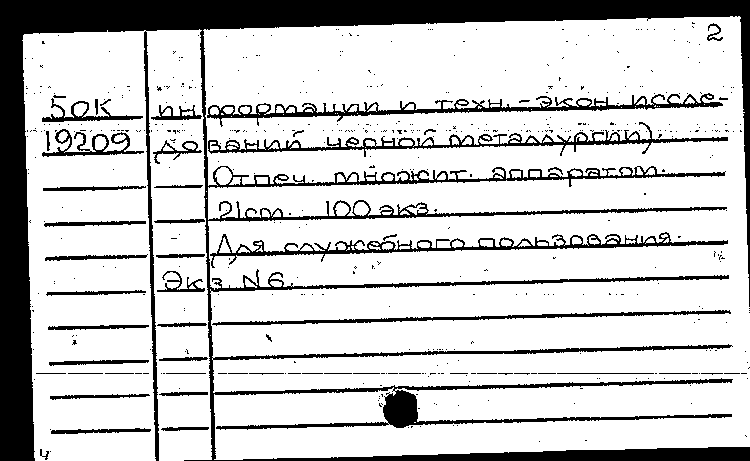 2
50К информации и техн.-экон иссле-
19209 дований черной металлургии).
Отпеч. множит. аппаратом.
21см. 100 экз.
Для служебного пользования.
Экз. N6.
4